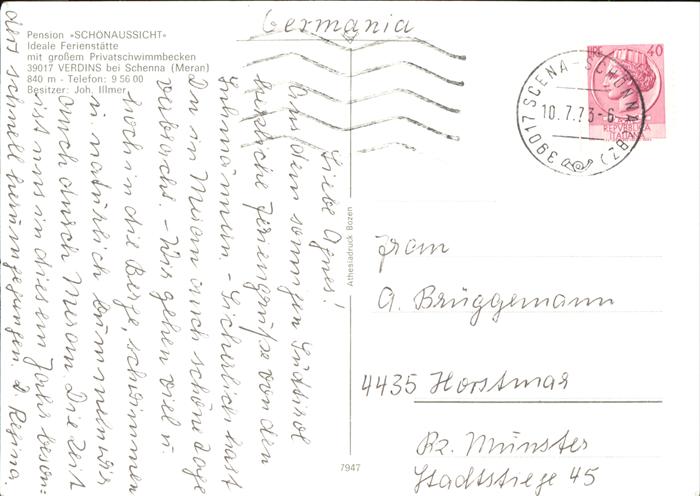 Pension »SCHÖNAUSSICHT«
Ideale Ferienstätte
mit großem Privatschwimmbecken
39017 VERDINS bei Schenna (Meran)
840 m - Telefon: 9 56 00
Besitzer: Joh. Illmer
Germania
LIRE 40
REPVBBLICA
ITALIANA
39017 SCENA - SCHÖNNA (BZ)
10.7.73-6
Liebe Agnes!
Aus dem sonnigen Südtirol
herzliche Feriengrüße von den
Lühmännern. - Sicherlich hast
Du in Meran auch schöne Tage
verbracht. - Wir gehen viel u.
hoch in die Berge, schwimmen
u. natürlich bummeln wir
auch durch Meran. Die Zeit
ist uns in diesem Jahr beson-
ders schnell herumgegangen.
Regina.
Athesiadruck Bozen
7947
Frau
A. Brüggemann
4435 Horstmar
Bz. Münster
Stadtstiege 45